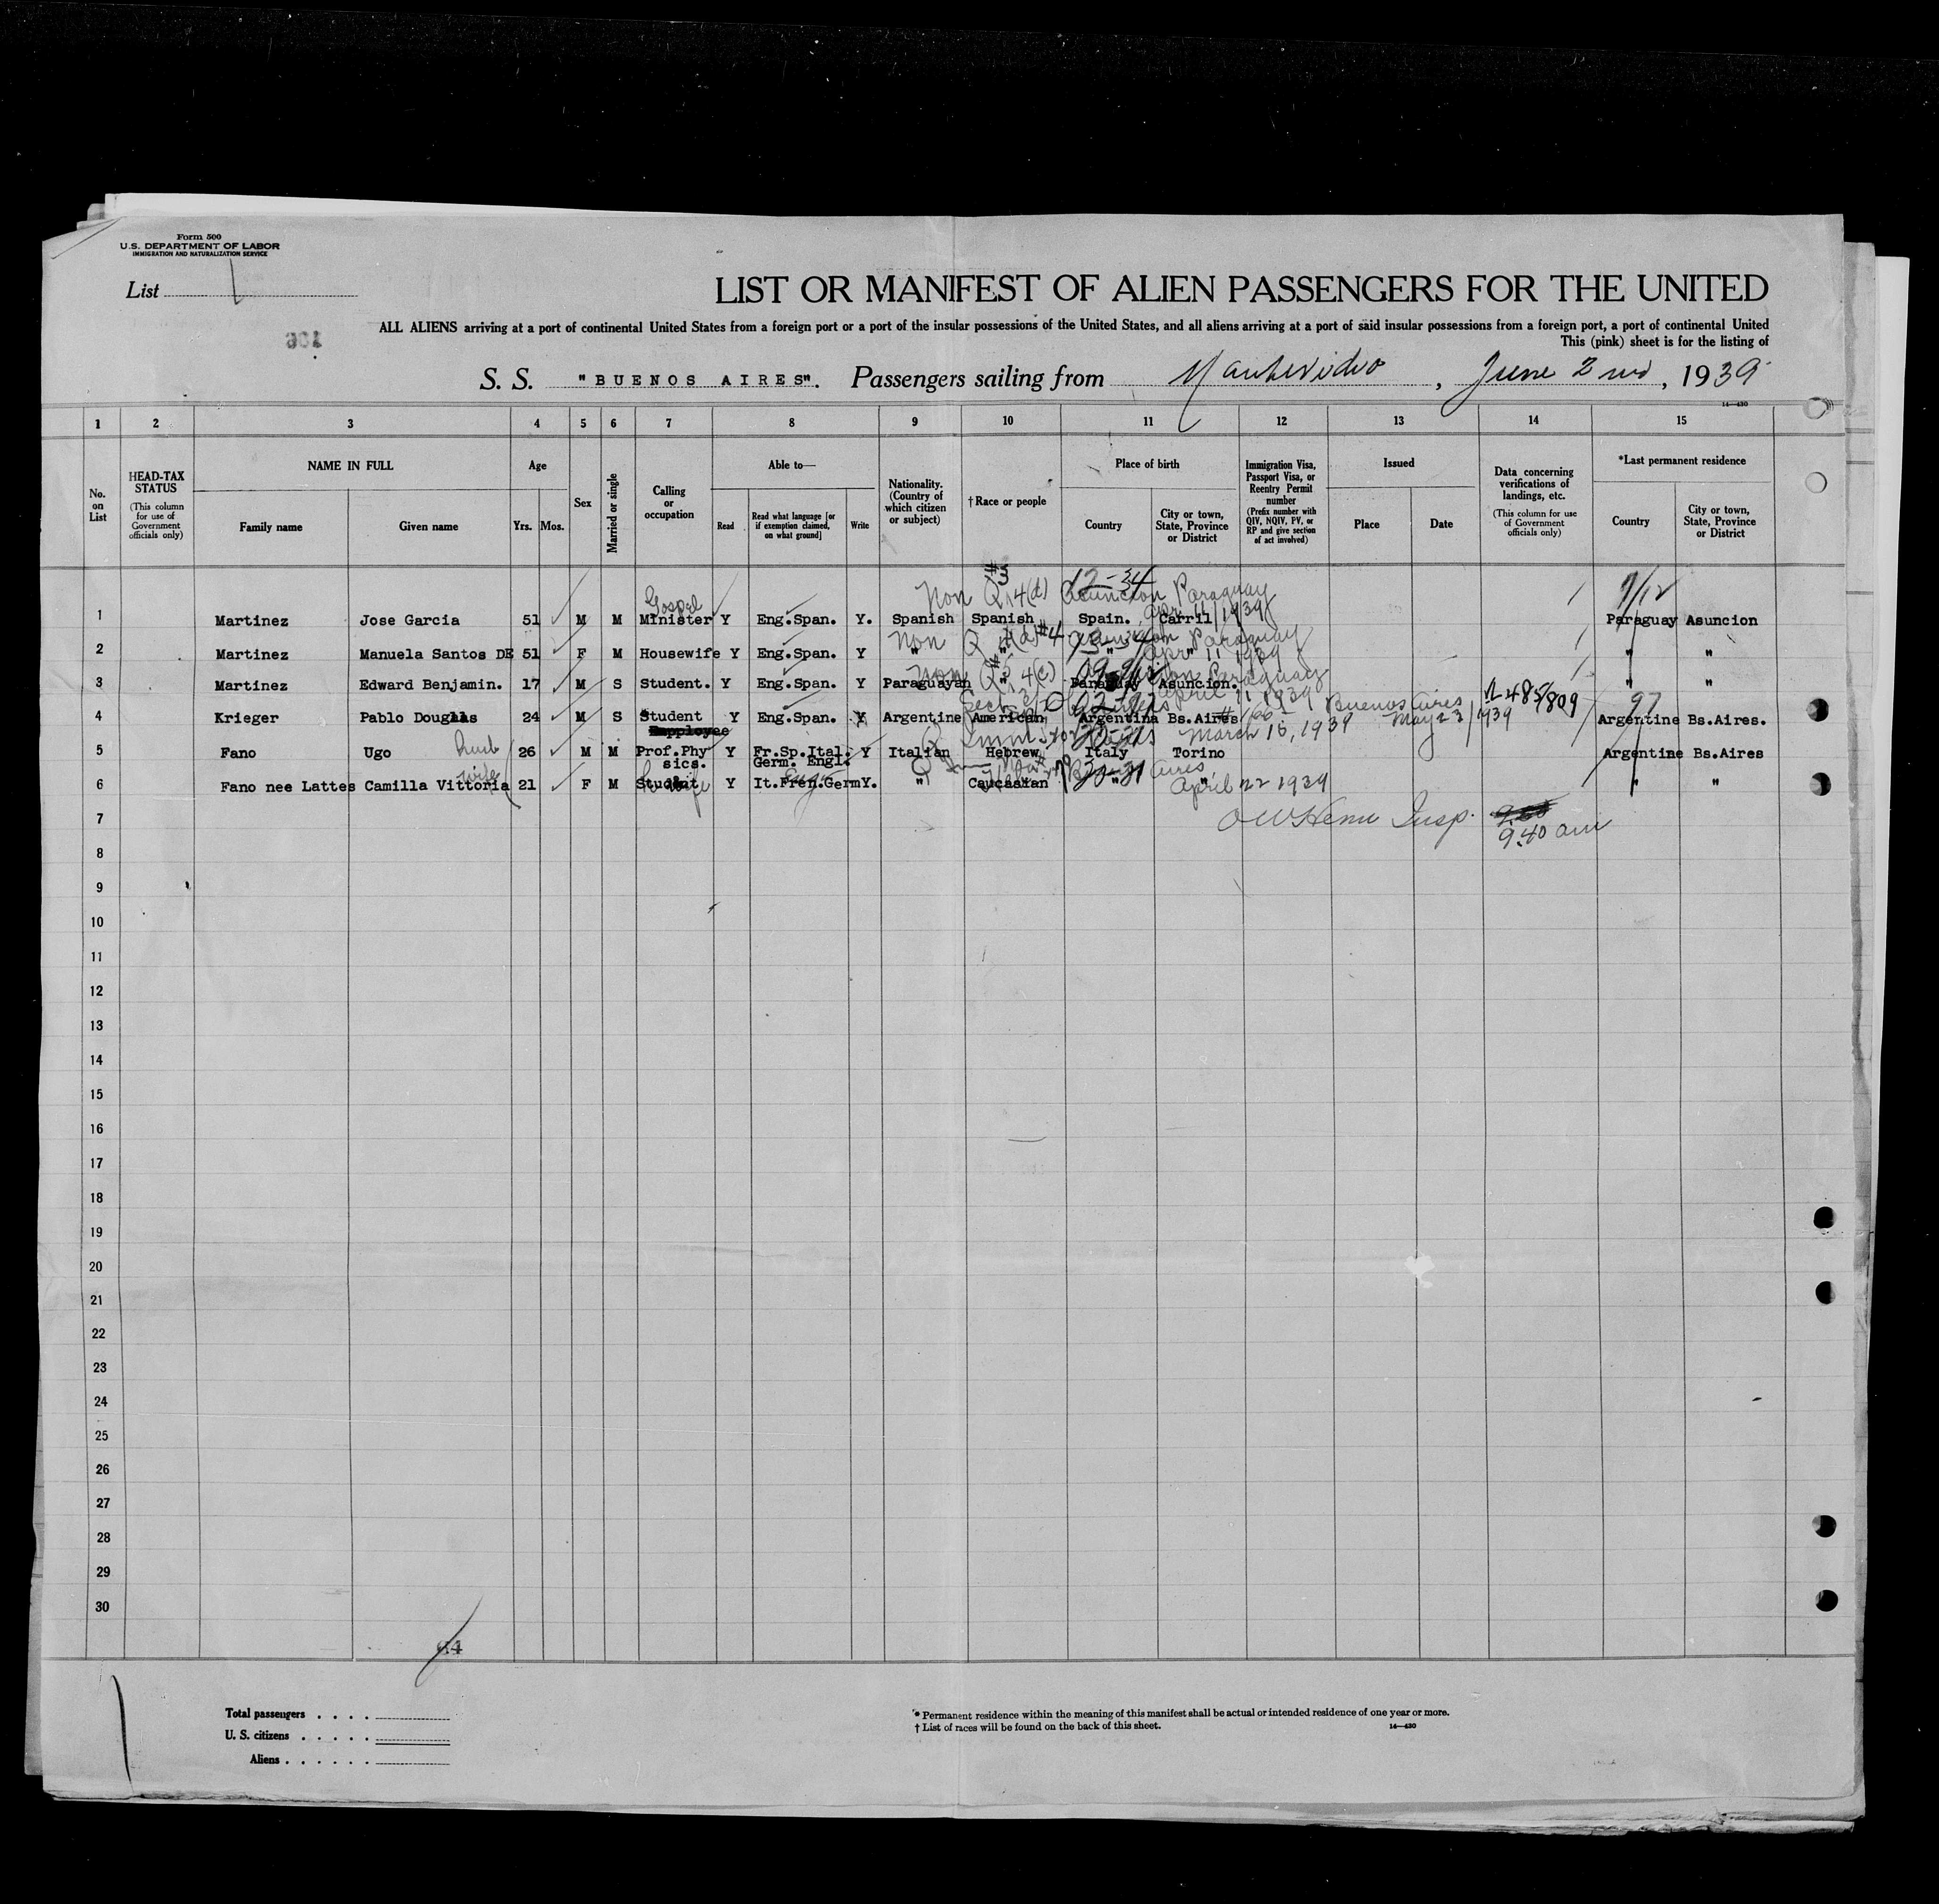 Form 500
U.S. DEPARTMENT OF LABOR
IMMIGRATION AND NATURALIZATION SERVICE
List 1
LIST OR MANIFEST OF ALIEN PASSENGERS FOR THE UNITED
ALL ALIENS arriving at a port of continental United States from a foreign port or a port of the insular possessions of the United States, and all aliens arriving at a port of said insular possessions from a foreign port, a port of continental United
This (pink) sheet is for the listing of
S. S. "BUENOS AIRES". Passengers sailing from Montevideo, June 2nd, 1939
14—430
1 2 3 4 5 6 7 8 9 10 11 12 13 14 15
No. on List
HEAD-TAX STATUS (This column for use of Government officials only)
NAME IN FULL Family name Given name
Age Yrs. Mos.
Sex
Married or single
Calling or occupation
Able to— Read Read what language [or if exemption claimed, on what ground] Write
Nationality. (Country of which citizen or subject)
†Race or people
Place of birth Country City or town, State, Province or District
Immigration Visa, Passport Visa, or Reentry Permit number (Prefix number with QIV, NQIV, PV, or RP and give section of act involved)
Issued Place Date
Data concerning verifications of landings, etc. (This column for use of Government officials only)
*Last permanent residence Country City or town, State, Province or District
#3 12-34
Non Q 4(d) Asuncion Paraguay 9/12
Gospel Apr 11/1939
1 Martinez Jose Garcia 51 M M Minister Y Eng.Span. Y. Spanish Spanish Spain. Carril Paraguay Asuncion
Non Q 4(d) #4 Asuncion Paraguay
Apr 11 1939
2 Martinez Manuela Santos DE 51 F M Housewife Y Eng.Span. Y " " " " " "
Non Q #5 4(c) Asuncion Paraguay
April 11 1939
3 Martinez Edward Benjamin. 17 M S Student. Y Eng.Span. Y Paraguayan " Paraguay Asuncion. " "
Sect 3(2) Buenos Aires May 23/1939 485809 97
4 Krieger Pablo Douglas 24 M S Student Y Eng.Span. Y Argentine American Argentina Bs.Aires Argentine Bs.Aires.
Employee
March 15, 1939
5 Fano Ugo husb 26 M M Prof.Phy sics. Y Fr.Sp.Ital. Germ. Engl. Y Italian Hebrew Italy Torino Argentine Bs.Aires
Aires
6 Fano nee Lattes Camilla Vittoria wife 21 F M Student Y It.Fren.Germ Y. " Caucasian " " April 22 1939 " "
7 Insp. 9.40 am
8
9
10
11
12
13
14
15
16
17
18
19
20
21
22
23
24
25
26
27
28
29
30
Total passengers
U. S. citizens
Aliens
* Permanent residence within the meaning of this manifest shall be actual or intended residence of one year or more.
† List of races will be found on the back of this sheet.
14—430